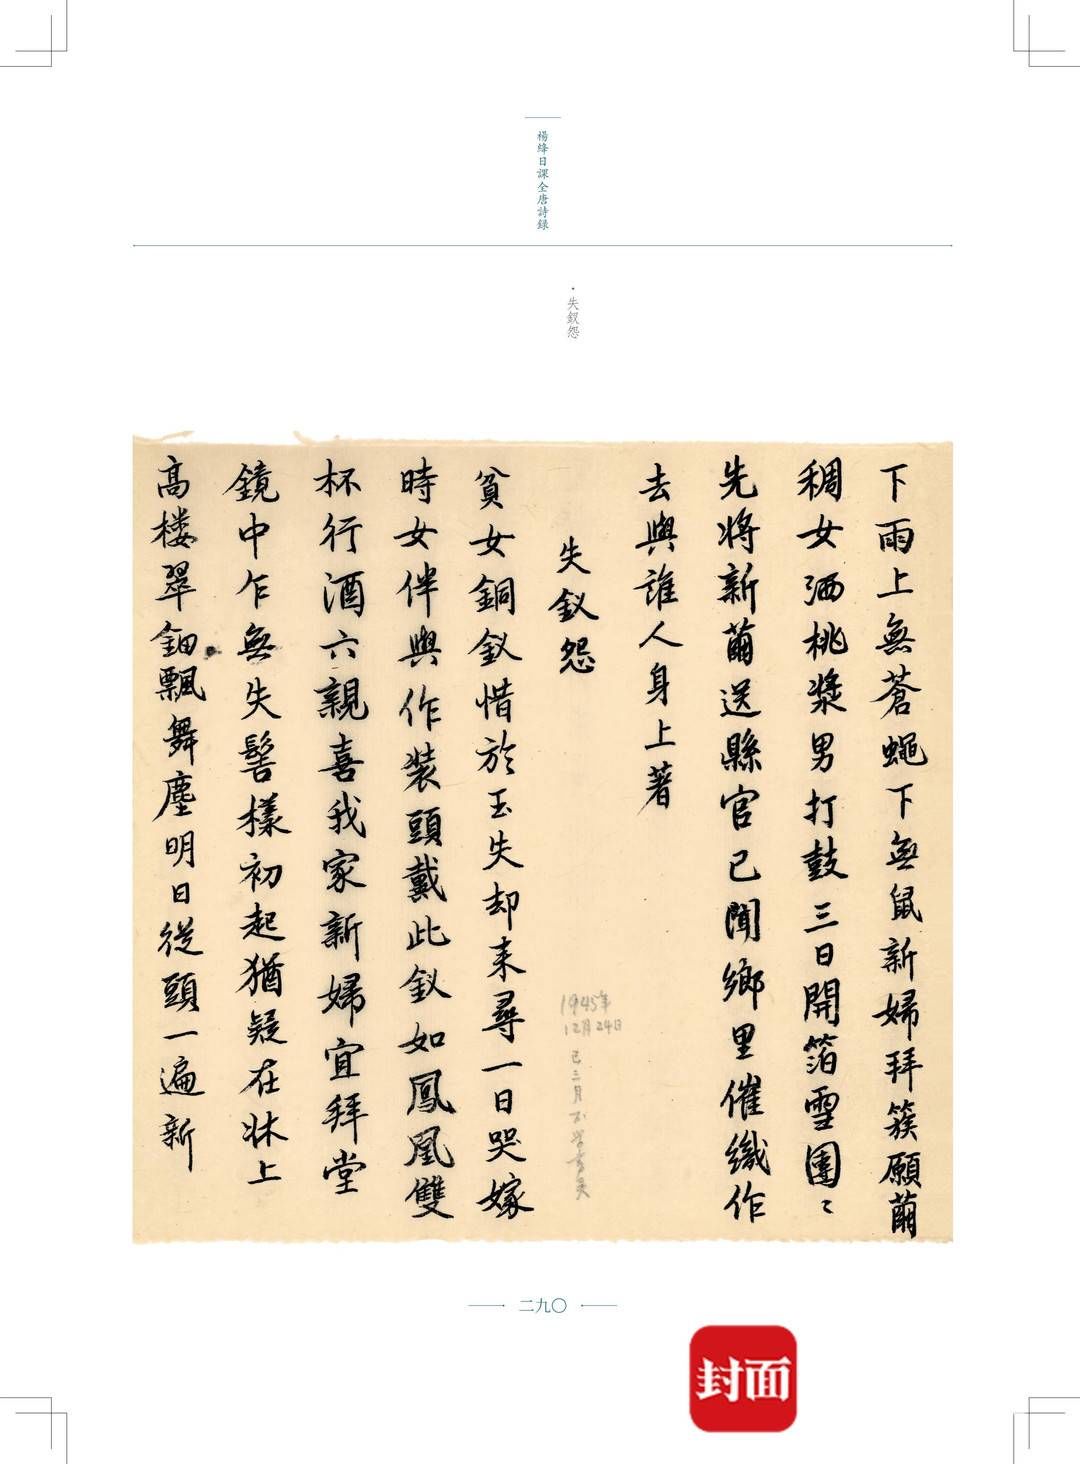 楊絳日課全唐詩録
·失釵怨
下雨上無蒼蠅下無鼠新婦拜簇願繭
稠女洒桃漿男打鼓三日開箔雪團〻
先將新繭送縣官已聞鄉里催織作
去與誰人身上著
失釵怨
1945年
12月24日
已三月不
貧女銅釵惜於玉失却来尋一日哭嫁
時女伴與作装頭戴此釵如鳳凰雙
杯行酒六親喜我家新婦宜拜堂
鏡中乍無失髻樣初起猶疑在牀上
高楼翠鈿飄舞塵明日從頭一遍新
二九〇
封面